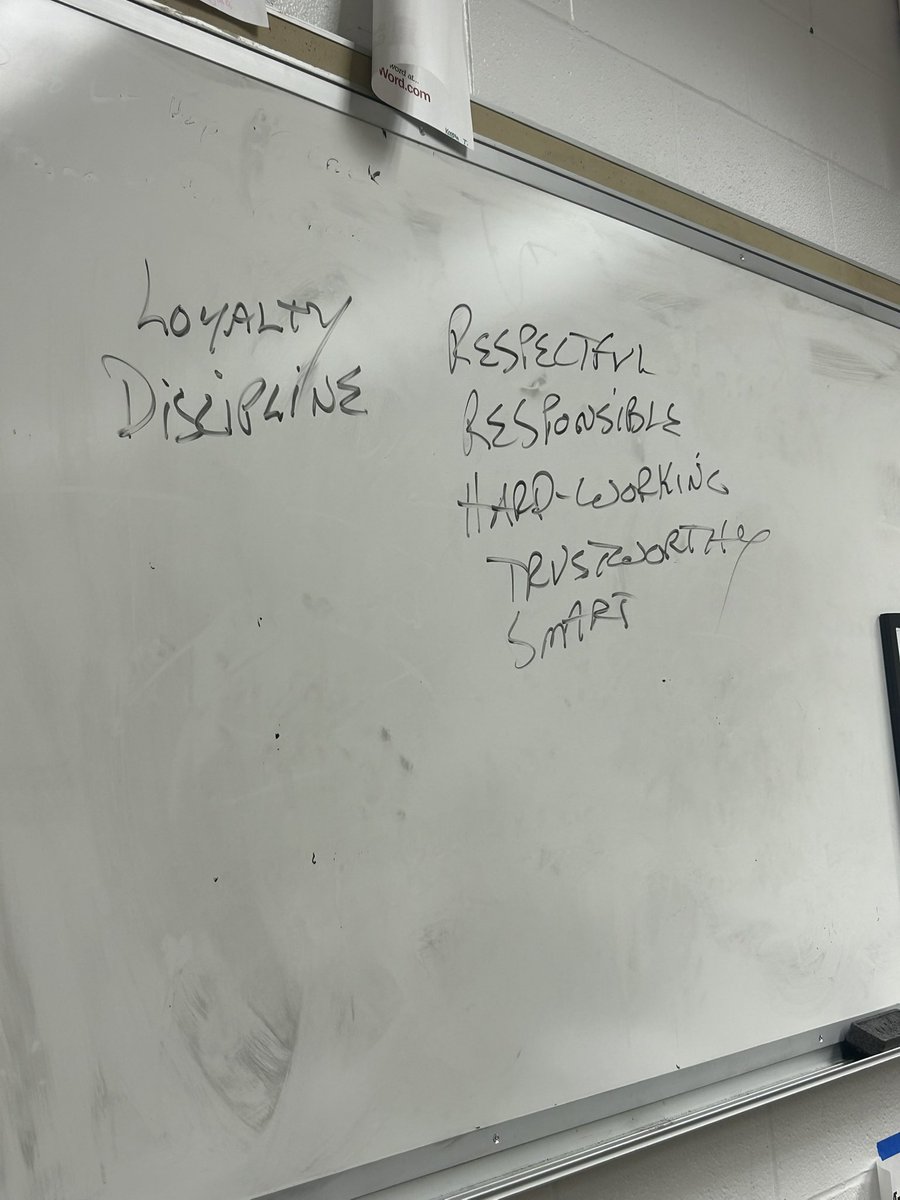 word at...
Word.com
LOYALTY
DISCIPLINE
RESPECTFUL
RESPONSIBLE
HARD-WORKING
TRUSTWORTHY
SMART